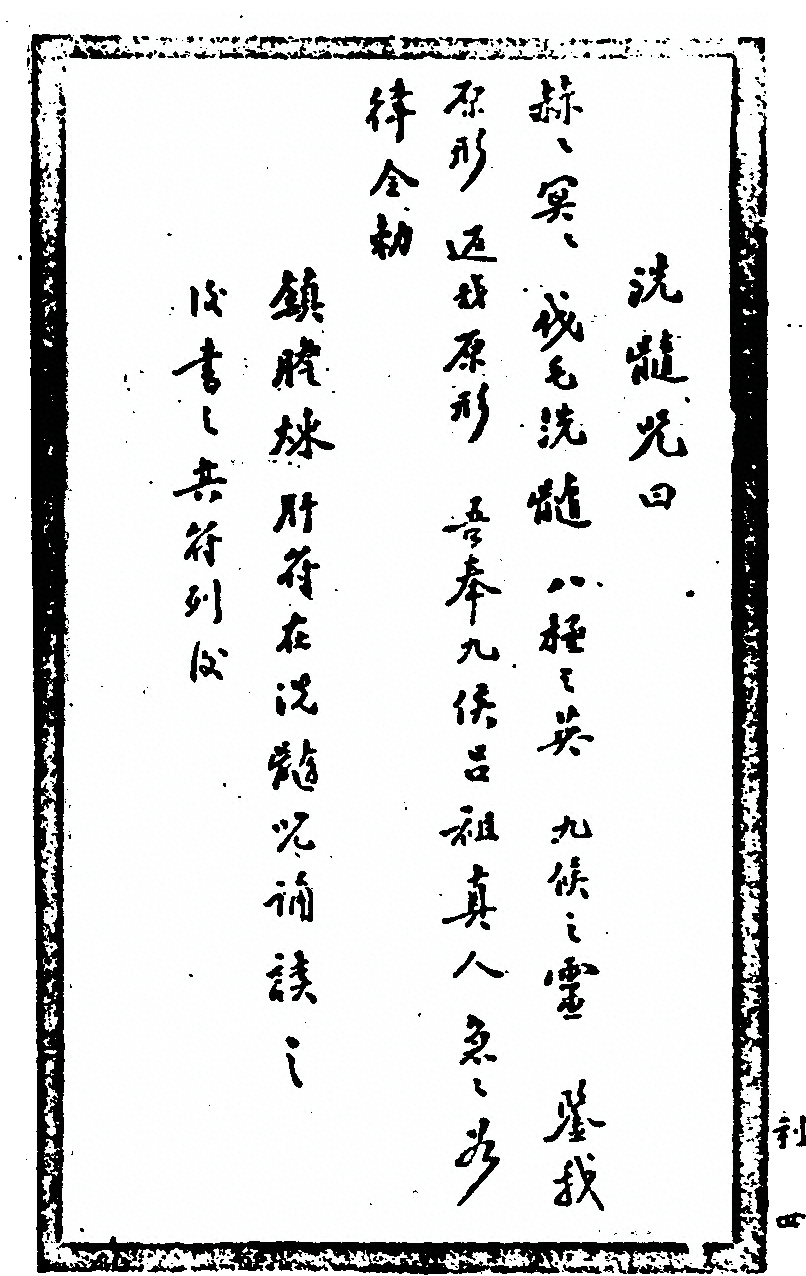 洗髓咒曰
赫〻冥〻 伐毛洗髓 八極之英 九候之靈 鑒我
原形 返我原形 吾奉九候呂祖真人 急〻如
律令勅
鎮膽 肝符在洗髓咒誦談之
後書之其符列後
利 四